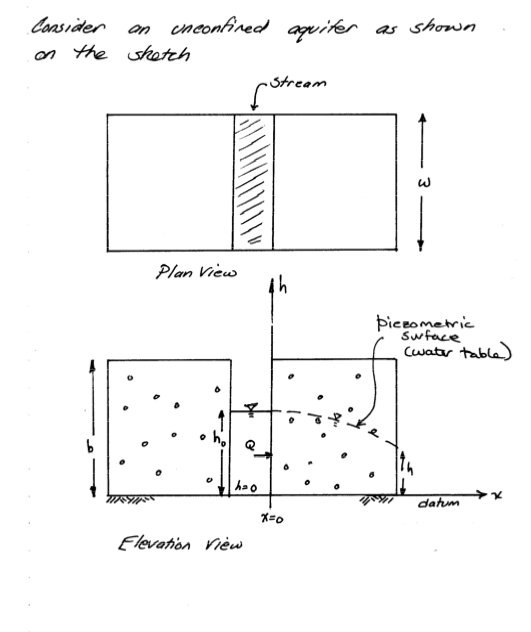 Consider an unconfined aquifer as shown
on the sketch
Stream
w
Plan View
h
piezometric
surface
(water table)
b
h₀
Q
h=0
h
x=0
datum
x
Elevation View